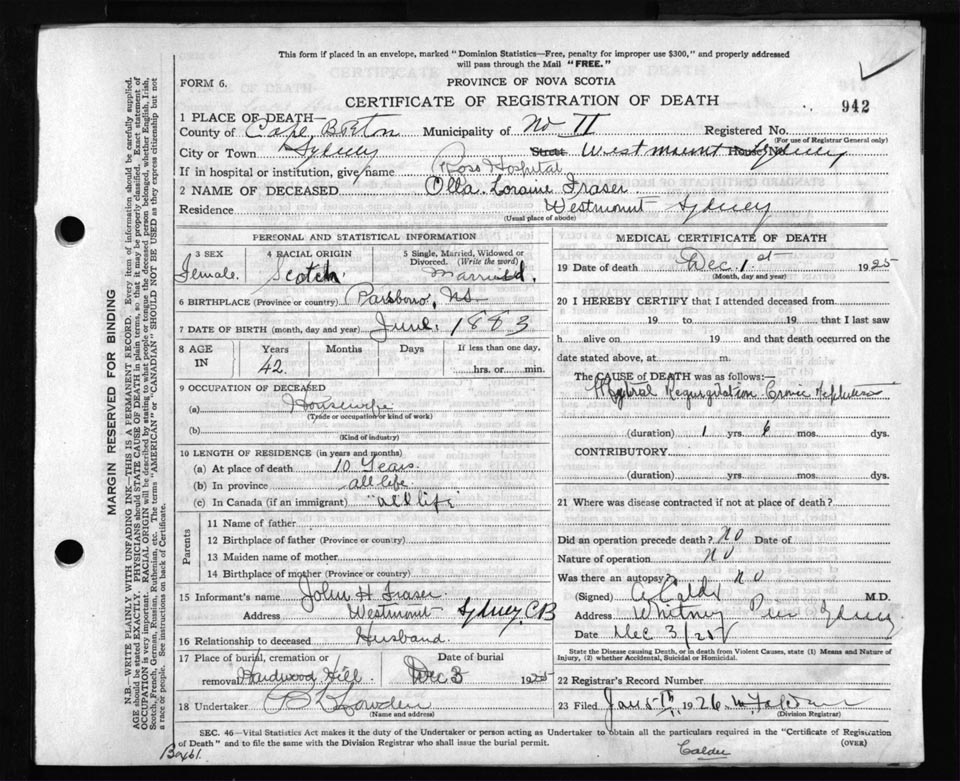 This form if placed in an envelope, marked "Dominion Statistics—Free, penalty for improper use $300," and properly addressed
will pass through the Mail "FREE."
FORM 6.
PROVINCE OF NOVA SCOTIA
CERTIFICATE OF REGISTRATION OF DEATH
942
1 PLACE OF DEATH—
County of Cape Breton Municipality of No II Registered No.
(For use of Registrar General only)
City or Town Sydney Street Westmount House No. Sydney
If in hospital or institution, give name Ross Hospital
2 NAME OF DECEASED Olla Loraine Fraser
Residence Westmount Sydney
(Usual place of abode)
PERSONAL AND STATISTICAL INFORMATION
3 SEX Female.
4 RACIAL ORIGIN Scotch
5 Single, Married, Widowed or Divorced. (Write the word) Married.
6 BIRTHPLACE (Province or country) Parsboro, N.S.
7 DATE OF BIRTH (month, day and year) June. 1883
8 AGE IN Years 42 Months Days If less than one day, hrs. or min.
9 OCCUPATION OF DECEASED
(a) Housewife
(Trade or occupation or kind of work)
(b)
(Kind of industry)
10 LENGTH OF RESIDENCE (in years and months)
(a) At place of death 10 Years.
(b) In province all life.
(c) In Canada (if an immigrant) "all life"
Parents
11 Name of father
12 Birthplace of father (Province or country)
13 Maiden name of mother
14 Birthplace of mother (Province or country)
15 Informant's name John H Fraser
Address Westmount Sydney, CB
16 Relationship to deceased Husband.
17 Place of burial, cremation or removal Hardwood Hill
Date of burial Dec 3 1925
18 Undertaker
(Name and address)
MEDICAL CERTIFICATE OF DEATH
19 Date of death Dec. 1st 1925
(Month, day and year)
20 I HEREBY CERTIFY that I attended deceased from
19 to 19 that I last saw
h alive on 19 and that death occurred on the
date stated above, at m.
The CAUSE of DEATH was as follows:—
Regurgitation
(duration) 1 yrs. 6 mos. dys.
CONTRIBUTORY
(duration) yrs. mos. dys.
21 Where was disease contracted if not at place of death?
Did an operation precede death? NO Date of
Nature of operation NO
Was there an autopsy? NO
(Signed) M.D.
Address Whitney Pier Sydney
Date Dec 3/25
State the Disease causing Death, or in death from Violent Causes, state (1) Means and Nature of
Injury, (2) whether Accidental, Suicidal or Homicidal.
22 Registrar's Record Number
23 Filed Jan 5th 1926
(Division Registrar)
SEC. 46—Vital Statistics Act makes it the duty of the Undertaker or person acting as Undertaker to obtain all the particulars required in the "Certificate of Registration
of Death" and to file the same with the Division Registrar who shall issue the burial permit.
(OVER)
Calder
MARGIN RESERVED FOR BINDING
N.B.—WRITE PLAINLY WITH UNFADING INK—THIS IS A PERMANENT RECORD. Every item of information should be carefully supplied.
AGE should be stated EXACTLY. PHYSICIANS should STATE CAUSE OF DEATH in plain terms, so that it may be properly classified. Exact statement of
OCCUPATION is very important. RACIAL ORIGIN will be described by stating to what people or tongue the deceased person belonged, whether English, Irish,
Scotch, French, German, Russian, Ruthenian, etc. The terms "AMERICAN" or "CANADIAN" SHOULD NOT BE USED as they express citizenship but not
a race or people. See instructions on back of Certificate.